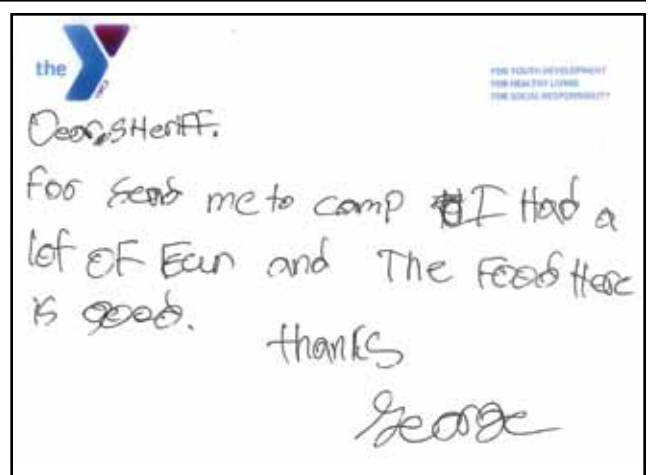 the
FOR YOUTH DEVELOPMENT
FOR HEALTHY LIVING
FOR SOCIAL RESPONSIBILITY
Dear, SHeriFF.
For send me to camp I Had a
lot OF Fun and The Food Here
is good.
thanks
George